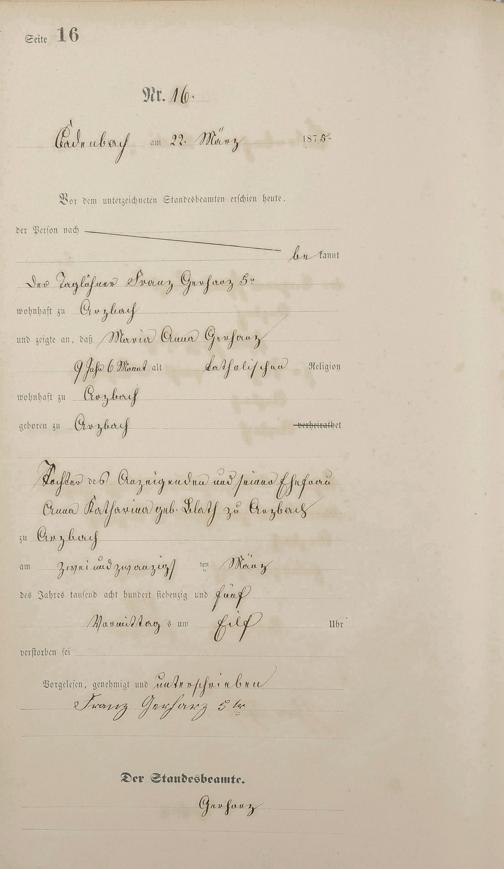 Seite 16
Nr. 16.
Cadenbach am 22. März 1875
Vor dem unterzeichneten Standesbeamten erschien heute.
der Person nach
be kannt
der Taglöhner Franz Gerharz 5r
wohnhaft zu Arzbach
und zeigte an, daß Maria Anna Gerharz
9 Jahr 6 Monat alt katholischen Religion
wohnhaft zu Arzbach
geboren zu Arzbach verheirathet
Tochter des Anzeigenden und seiner Ehefrau
Anna Katharina geb. zu Arzbach
zu Arzbach
am zwei und zwanzigst den März
des Jahres tausend acht hundert siebenzig und fünf
Vormittag s um Eilf Uhr
verstorben sei
Vorgelesen, genehmigt und unterschrieben
Franz Gerharz 5ter
Der Standesbeamte.
Gerharz